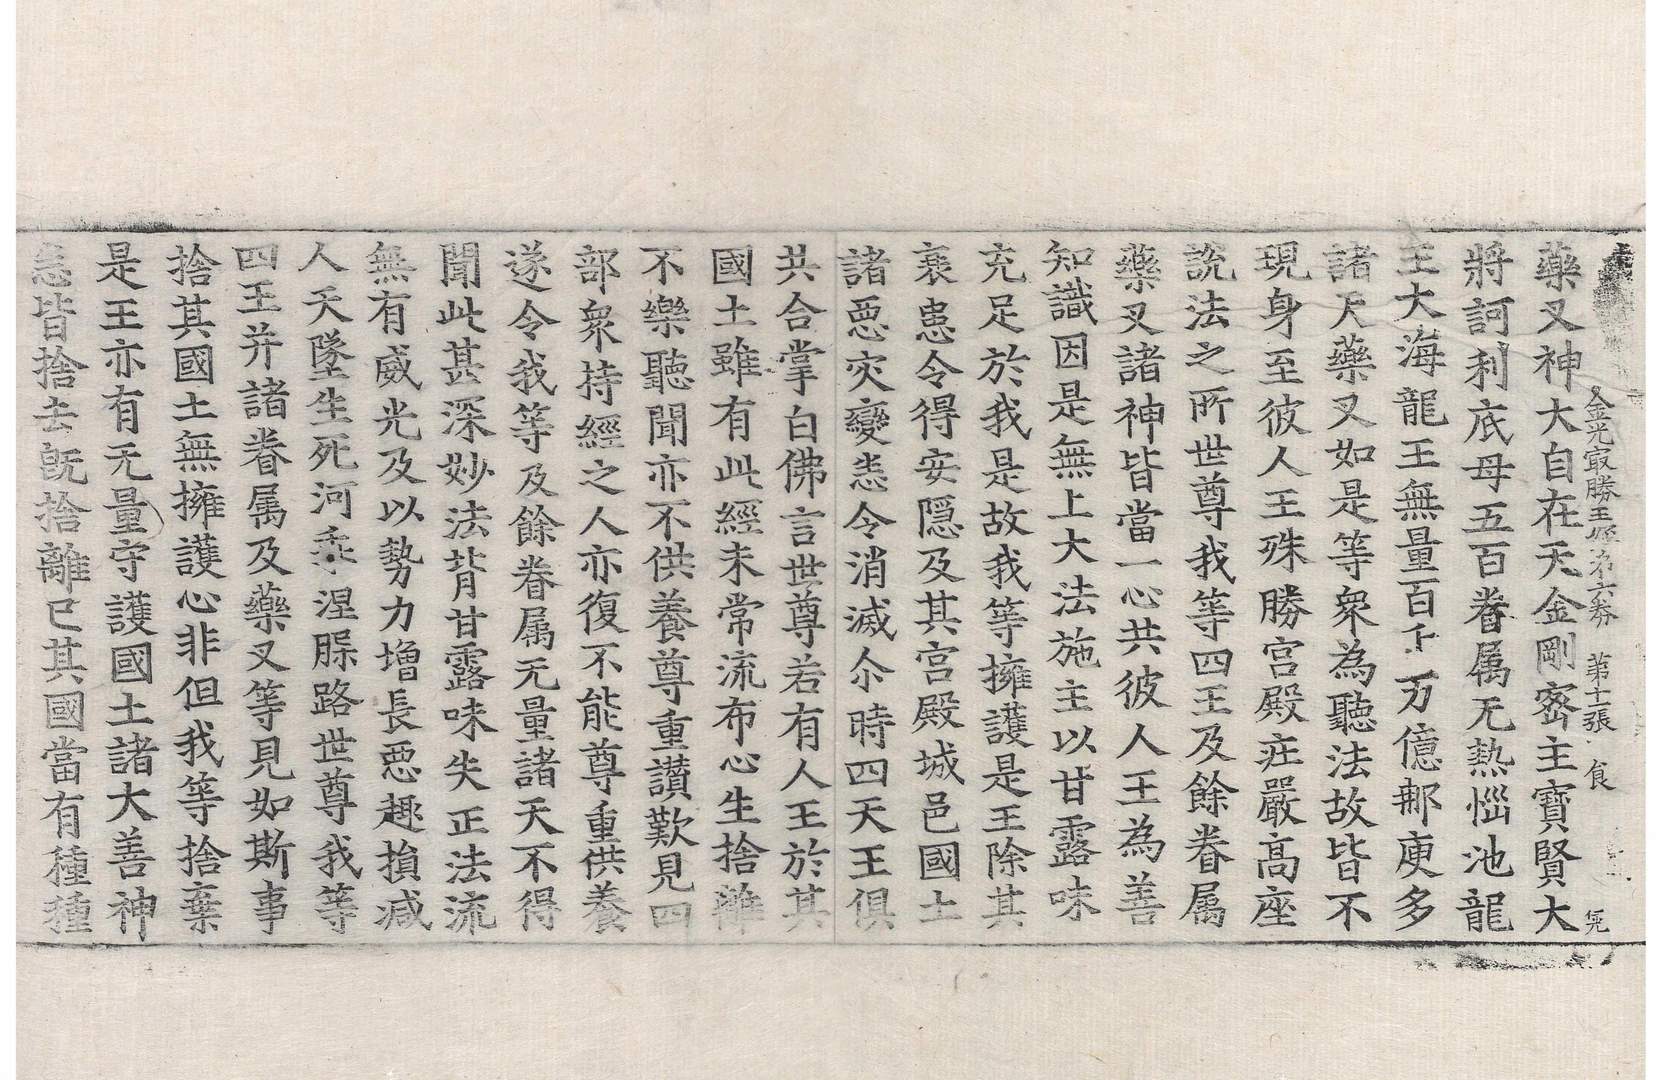 金光最勝王経第六卷　第十二張　食
藥叉神大自在天金剛密主寶賢大
將訶利底母五百眷属无熱惱池龍
王大海龍王無量百千万億郍庾多
諸天藥叉如是等衆為聽法故皆不
現身至彼人王殊勝宫殿疘嚴高座
說法之所世尊我等四王及餘眷属
藥叉諸神皆當一心共彼人王為善
知識因是無上大法施主以甘露味
充足於我是故我等擁護是王除其
衰患令得安隱及其宫殿城邑國土
諸惡灾變悉令消滅尒時四天王俱
共合掌白佛言世尊若有人王於其
國土雖有此經未常流布心生捨離
不樂聽聞亦不供養尊重讃歎見四
部衆持經之人亦復不能尊重供養
遂令我等及餘眷属无量諸天不得
聞此甚深妙法背甘露味失正法流
無有威光及以勢力增長惡趣損减
人天墜生死河乖涅脲路世尊我等
四王并諸眷属及藥叉等見如斯事
捨其國土無擁護心非但我等捨棄
是王亦有无量守護國土諸大善神
悉皆捨去既捨離已其國當有種種